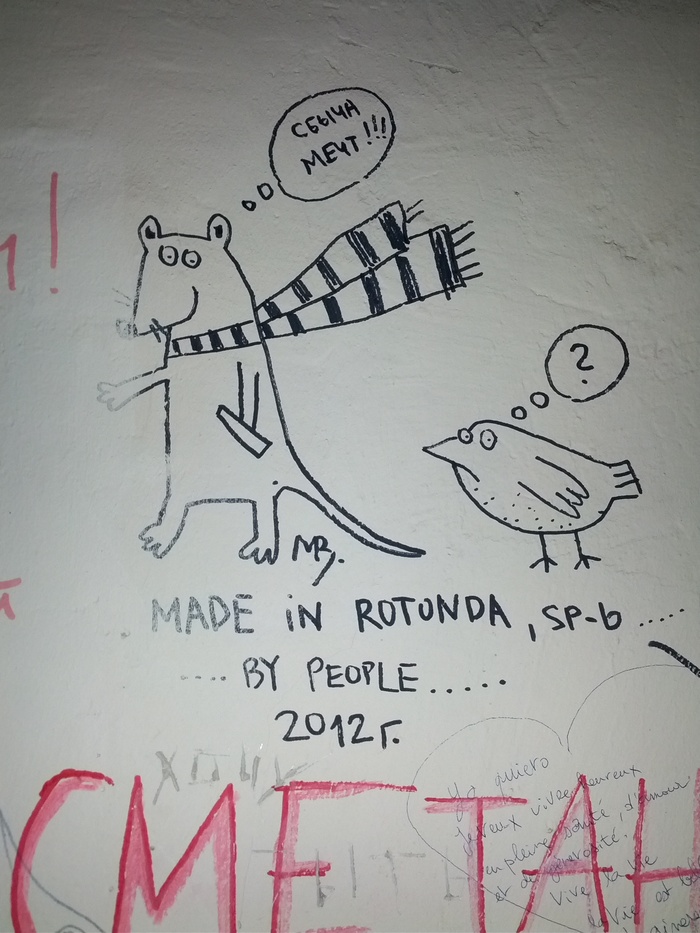 СБЫЧА
МЕЧТ!!!
?
MB.
MADE iN ROTUNDA, SP-b .....
.... BY PEOPLE.....
2012г.
ХОЧУ
СМЕТАН
Yo quiero
Je veux vivre heureux
en pleine santé, d'amour
et de générosité.
Vive la vie
la vie est